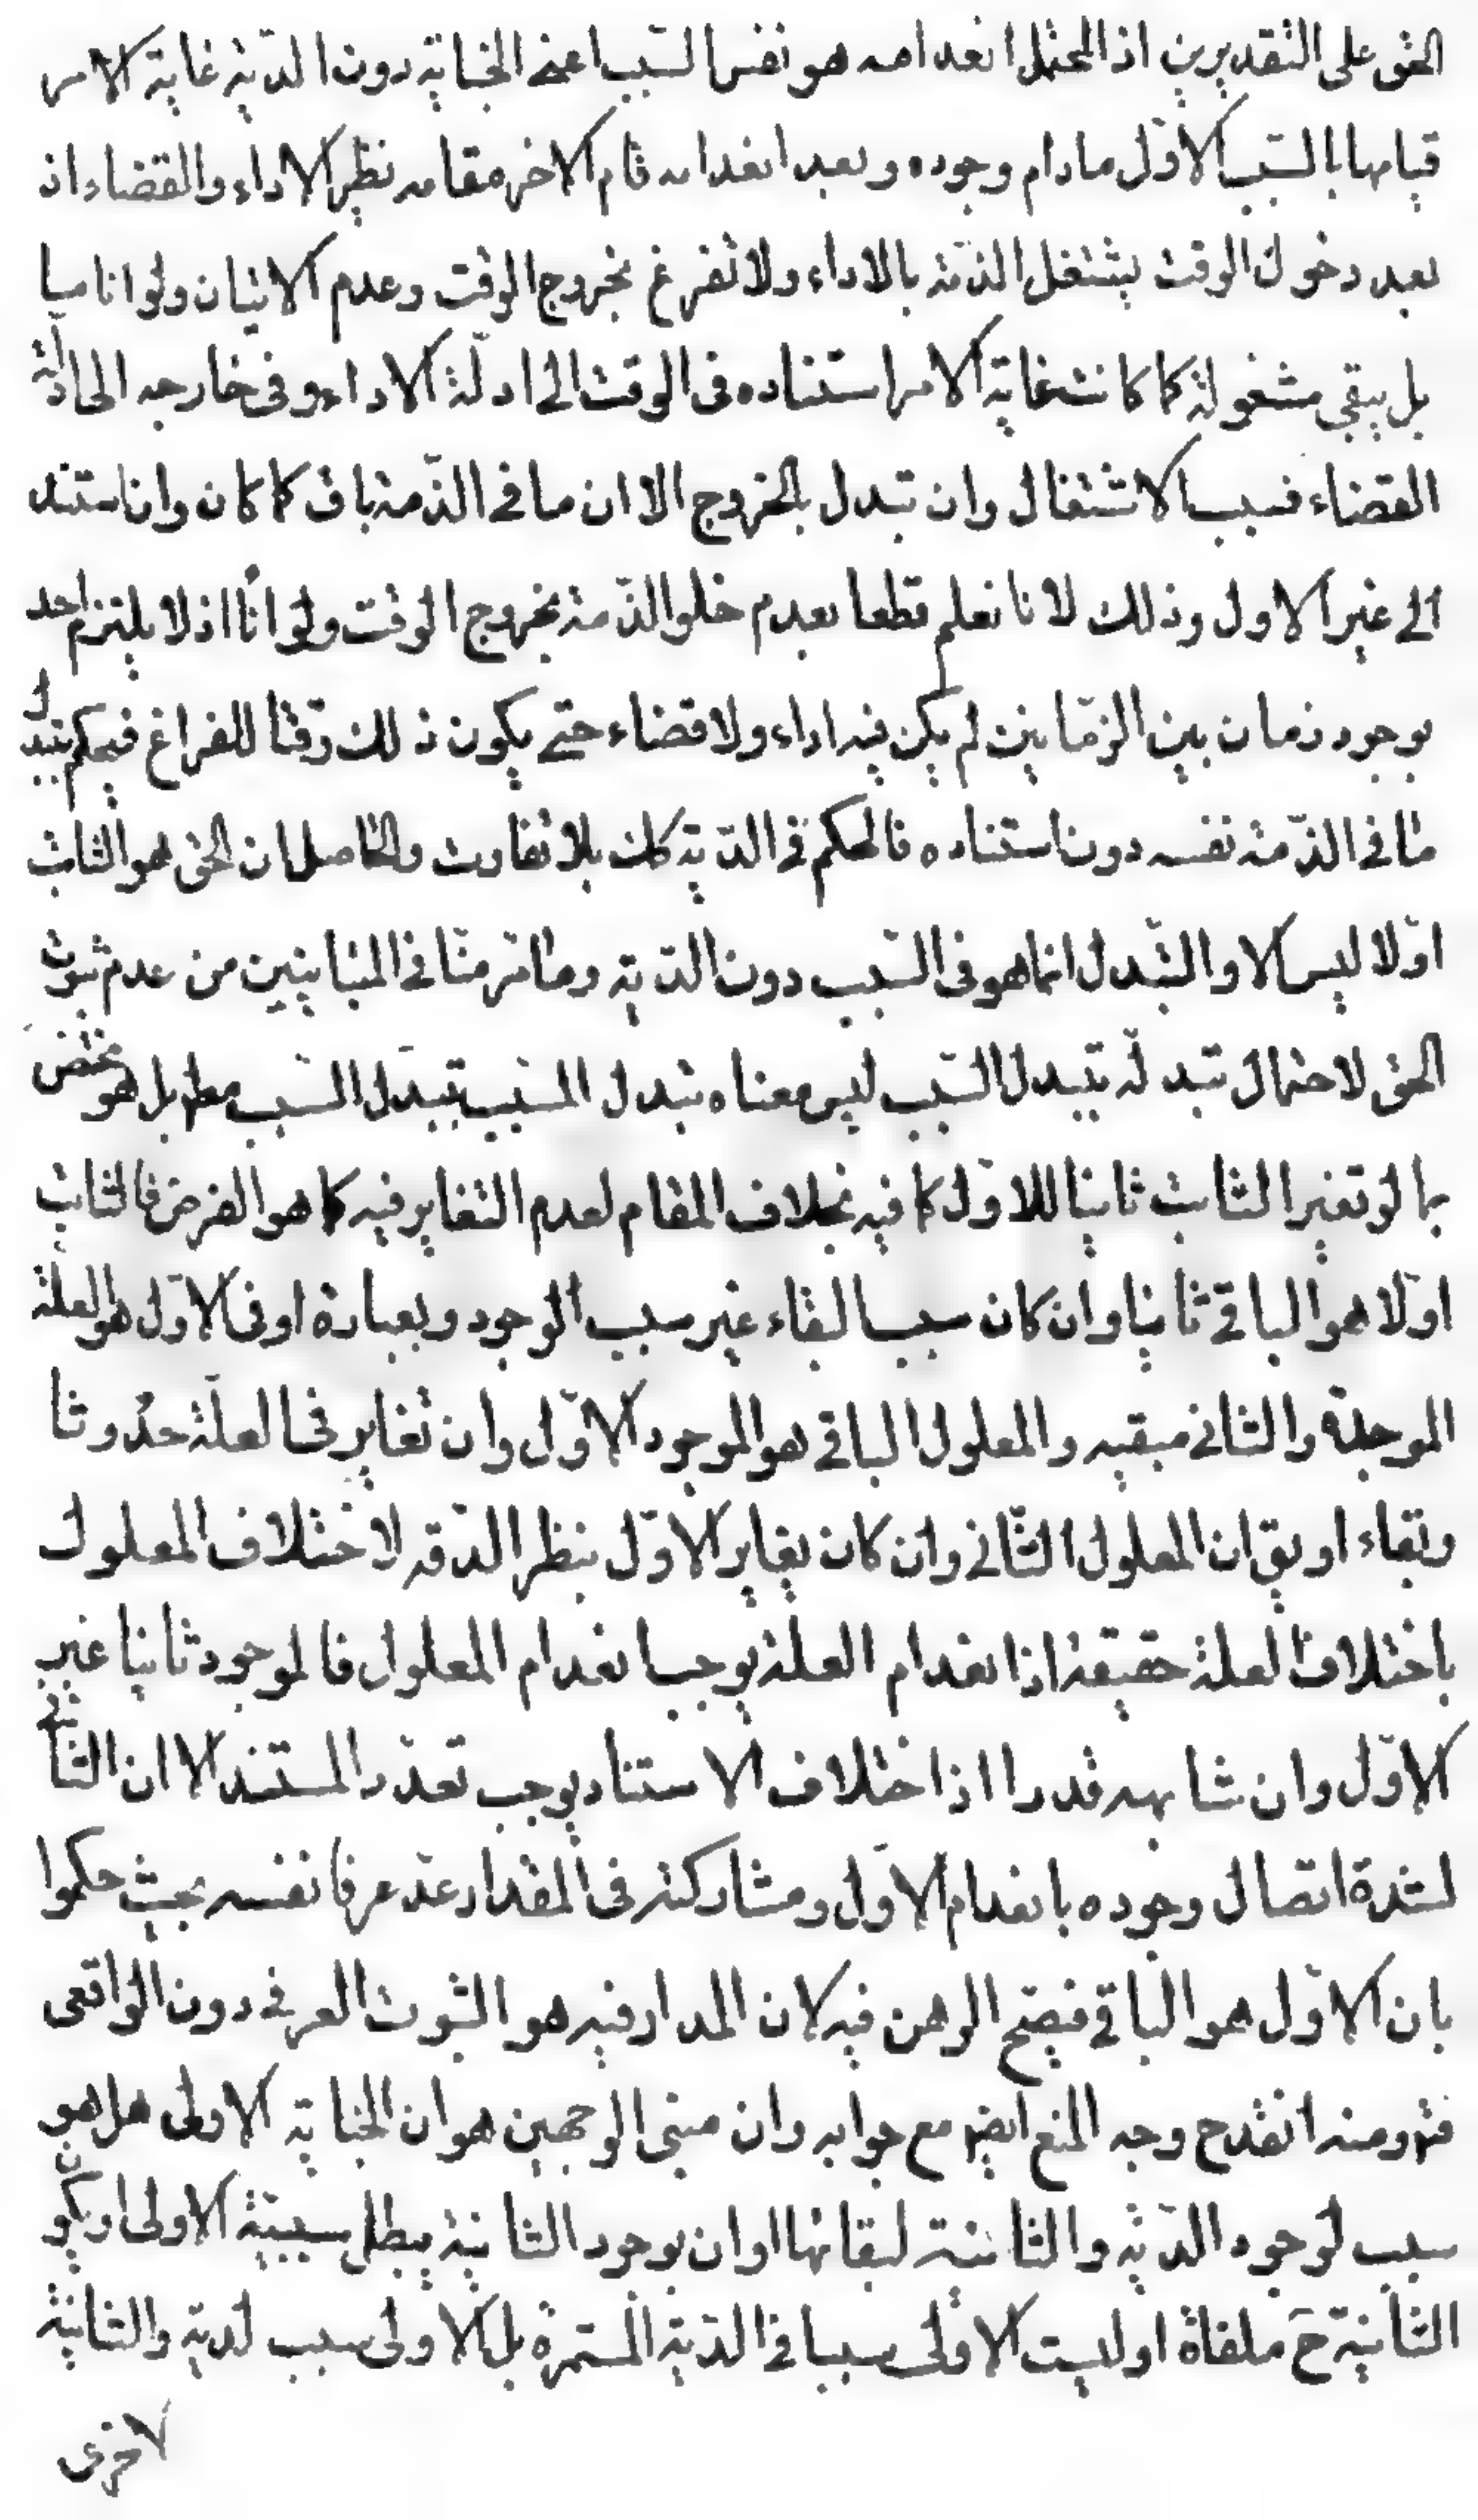 الحق على التقديرين اذ المحتمل انعدامه هو نفس السبب اعنى الجناية دون الدّية غاية الامر
قيامها بالسّبب الاوّل مادام وجوده وبعد انعدامه قام الاخر مقامه نظير الاداء والقضاء اذ
بعد دخول الوقت يشتغل الذمّة بالاداء ولا تفرغ بخروج الوقت وعدم الاتيان ولو انا ما
بل يبقى مشغولة كما كانت غاية الامر استناده فى الوقت الى ادلّة الاداء وفى خارجه الى ادلة
القضاء فسبب الاشتغال وان تبدل بالخروج الا ان ما فى الذّمة باق كما كان وان استند
الى غير الاول وذلك لانا نعلم قطعا بعدم خلو الذّمة بخروج الوقت ولو انًا اذ لا يلتزم احد
بوجود زمان بين الزمّانين لم يكن فيه اداء ولا قضاء حتى يكون ذلك وقتا للفراغ فيحكم بتبدل
ما فى الذّمة نفسه دون استناده فالحكم فى الدّية كك بلا تفاوت والحاصل ان الحق هو الثابت
اوّلا ليس الا والتّبدل انما هو فى السّبب دون الدّية وما مر منّا فى المتباينين من عدم ثبوت
الحق لاحتمال تبدله بتبدل السّبب ليس معناه تبدل المسّبب بتبدّل السّبب مط بل هو مختص
بما لو تغير الثابت ثانيا للاوّل كما فيه بخلاف المقام لعدم التغاير فيه كما هو الفرض فالثابت
اوّلا هو الباقى ثانيا وان كان سبب البقاء غير سبب الوجود وبعبارة اوفى الاوّل هو العلة
الموجدة والثانى مبقيه والمعلول الباقى هو الموجود الاوّل وان تغاير فى العلّة حدُوثا
وبقاء او يق ان المعلول الثّانى وان كان يغاير الاوّل بنظر الدّقه لاختلاف المعلول
باختلاف العلة حقيقة اذ انعدام العلة يوجب انعدام المعلول فالموجود ثانيا غير
الاوّل وان شابهه قدرا اذ اختلاف الاستناد يوجب تعدّد المستند الا ان الثانى
لشدة اتصال وجوده بانعدام الاوّل ومشاركته فى المقدار عدّ عرفا نفسه بحيث حكموا
بان الاوّل هو الباقى فيصّح الرهن فيه لان المدار فيه هو الثبوت العرفى دون الواقعى
فت ومنه انقدح وجه المنع ايضا مع جوابه وان مبنى الوجهين هو ان الجناية الاولى هل هو
سبب لوجود الدّية والثانية لبقائها او ان بوجود الثانية يبطل سببيّة الاولى او يكون
الثانية ح ملغاة او ليست الاولى سببا فى الدّية المستمرة بل الاولى سبب لدية والثانية
لاخرى